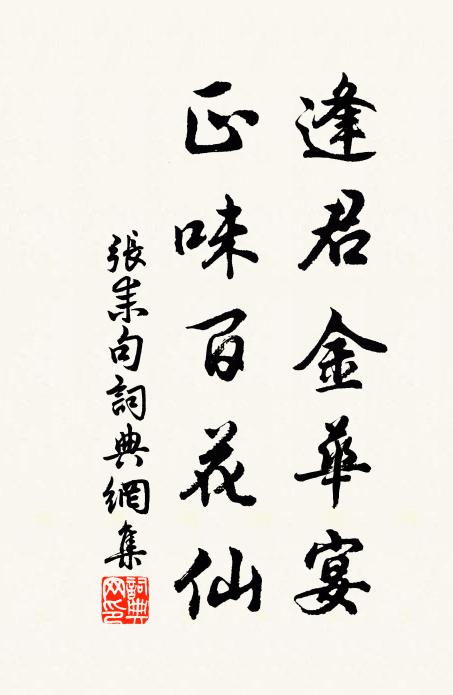 逢君金華宴
正味百花仙
張耒句詞典網集
詞典
网印